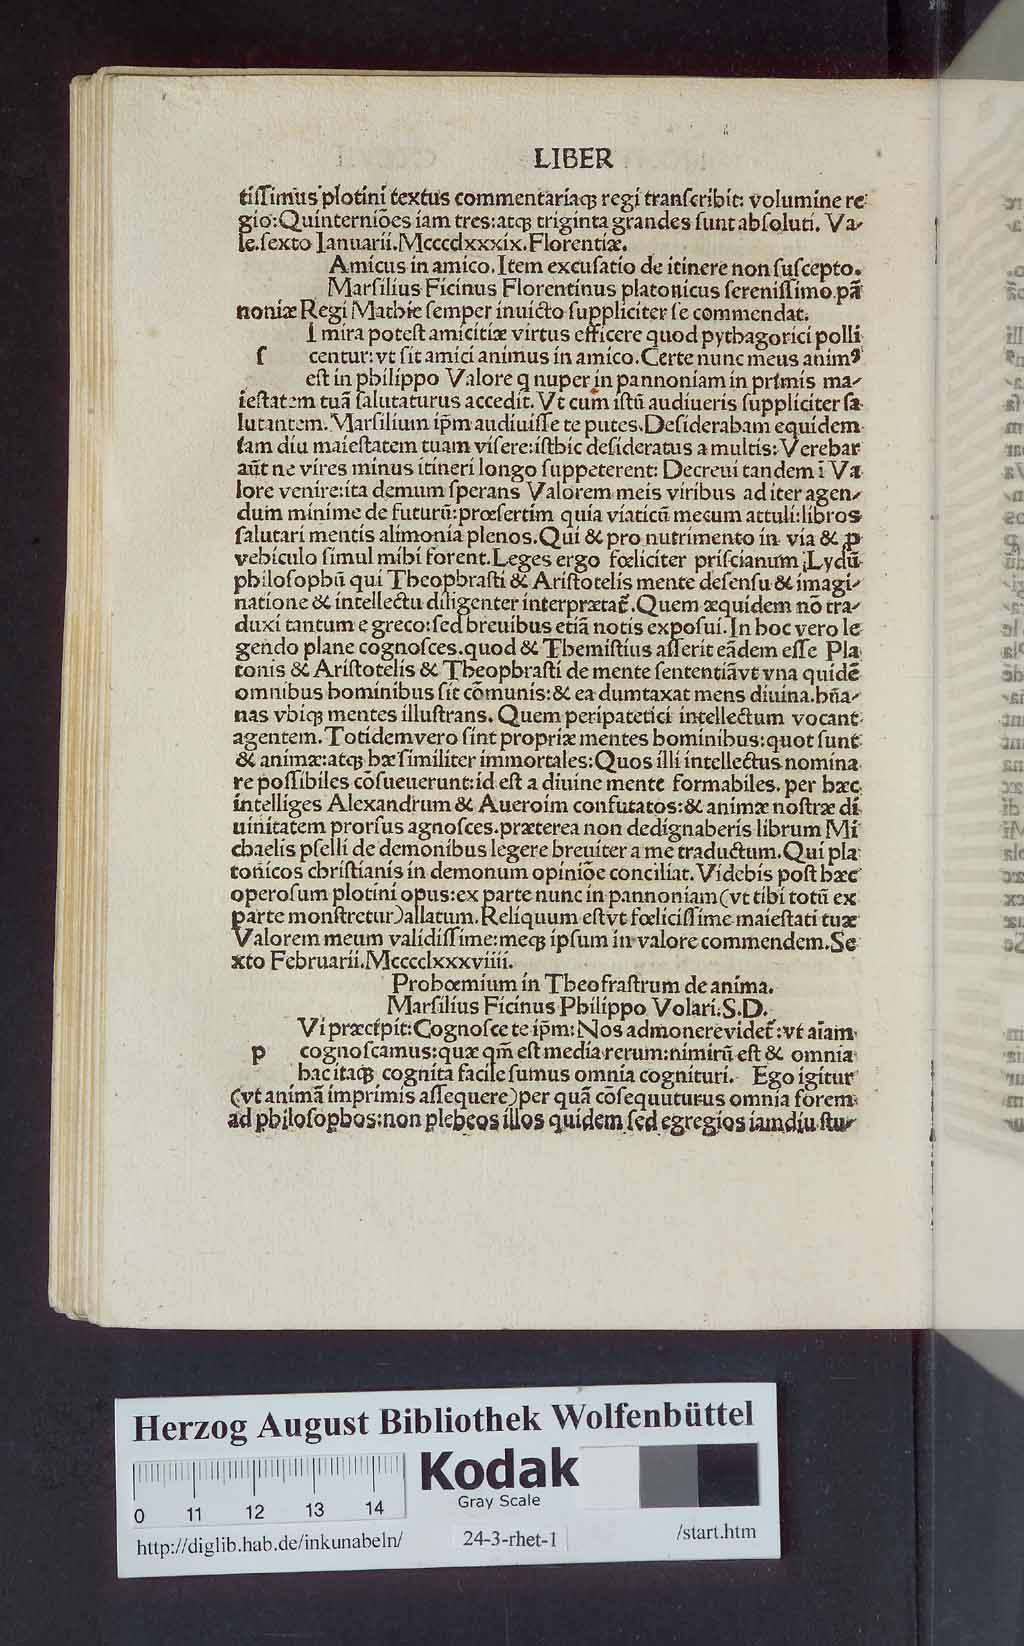 LIBER
tiſſimus plotini textus commentariaqꝫ regi tranſcribit: volumine re
gio: Quinterniões iam tres: atqꝫ triginta grandes ſunt abſoluti. Va-
le. ſexto Ianuarii. Mccccclxxxix. Florentiæ.
Amicus in amico. Item excuſatio de itinere non ſuſcepto.
Marſilius Ficinus Florentinus platonicus ſereniſſimo pã
noniæ Regi Mathie ſemper inuicto ſuppliciter ſe commendat.
I mira poteſt amicitiæ virtus efficere quod pythagorici polli
ſ centur: vt ſit amici animus in amico. Certe nunc meus animꝰ
eſt in philippo Valore q nuper in pannoniam in primis ma-
ieſtatem tuã ſalutaturus accedit. Vt cum iſtũ audiueris ſuppliciter ſa
lutantem. Marſilium ip̃m audiuiſſe te putes. Deſiderabam equidem
iam diu maieſtatem tuam viſere: iſthic deſideratus a multis: Verebar
aũt ne vires minus itineri longo ſuppeterent: Decreui tandem ĩ Va
lore venire: ita demum ſperans Valorem meis viribus ad iter agen-
dum minime de futurũ: prœſertim quia viaticũ mecum attuli: libros
ſalutari mentis alimonia plenos. Qui & pro nutrimento in via & ꝓ
vehiculo ſimul mihi forent. Leges ergo fœliciter priſcianum Lydũ
philoſophũ qui Theophraſti & Ariſtotelis mente deſenſu & imagi-
natione & intellectu diligenter interprætat̃. Quem æquidem nõ tra-
duxi tantum e greco: ſed breuibus etiã notis expoſui. In hoc vero le
gendo plane cognoſces. quod & Themiſtius aſſerit eãdem eſſe Pla
tonis & Ariſtotelis & Theophraſti de mente ſententiã vt vna quidẽ
omnibus hominibus ſit cõmunis: & ea dumtaxat mens diuina. hũa-
nas vbiqꝫ mentes illuſtrans. Quem peripatetici intellectum vocant
agentem. Totidem vero ſint propriæ mentes hominibus: quot ſunt
& animæ: atqꝫ hæ ſimiliter immortales: Quos illi intellectus nomina
re poſſibiles cõſueuerunt: id eſt a diuine mente formabiles. per hæc
intelliges Alexandrum & Aueroim confutatos: & animæ noſtræ di
uinitatem prorſus agnoſces. præterea non dedignaberis librum Mi
chaelis pſelli de demonibus legere breuiter a me traductum. Qui pla
tonicos chriſtianis in demonum opiniõe conciliat. Videbis poſt hæc
operoſum plotini opus: ex parte nunc in pannoniam (vt tibi totũ ex
parte monſtretur) allatum. Reliquum eſt vt fœliciſſime maieſtati tuæ
Valorem meum validiſſime: meqꝫ ipſum in valore commendem. Se
xto Februarii. Mccccclxxxviiii.
Prohœmium in Theofraſtrum de anima.
Marſilius Ficinus Philippo Volari. S. D.
Vi præcipit: Cognoſce te ip̃m: Nos admonere videt̃: vt aĩam
p cognoſcamus: quæ qm̃ eſt media rerum: nimirũ eſt & omnia
hac itaqꝫ cognita facile ſumus omnia cognituri. Ego igitur
(vt animã imprimis aſſequere) per quã cõſequuturus omnia forem
ad philoſophos: non plebeos illos quidem ſed egregios iamdiu ſtu-
Herzog August Bibliothek Wolfenbüttel
Kodak
Gray Scale
0 11 12 13 14
http://diglib.hab.de/inkunabeln/ 24-3-rhet-1 /start.htm